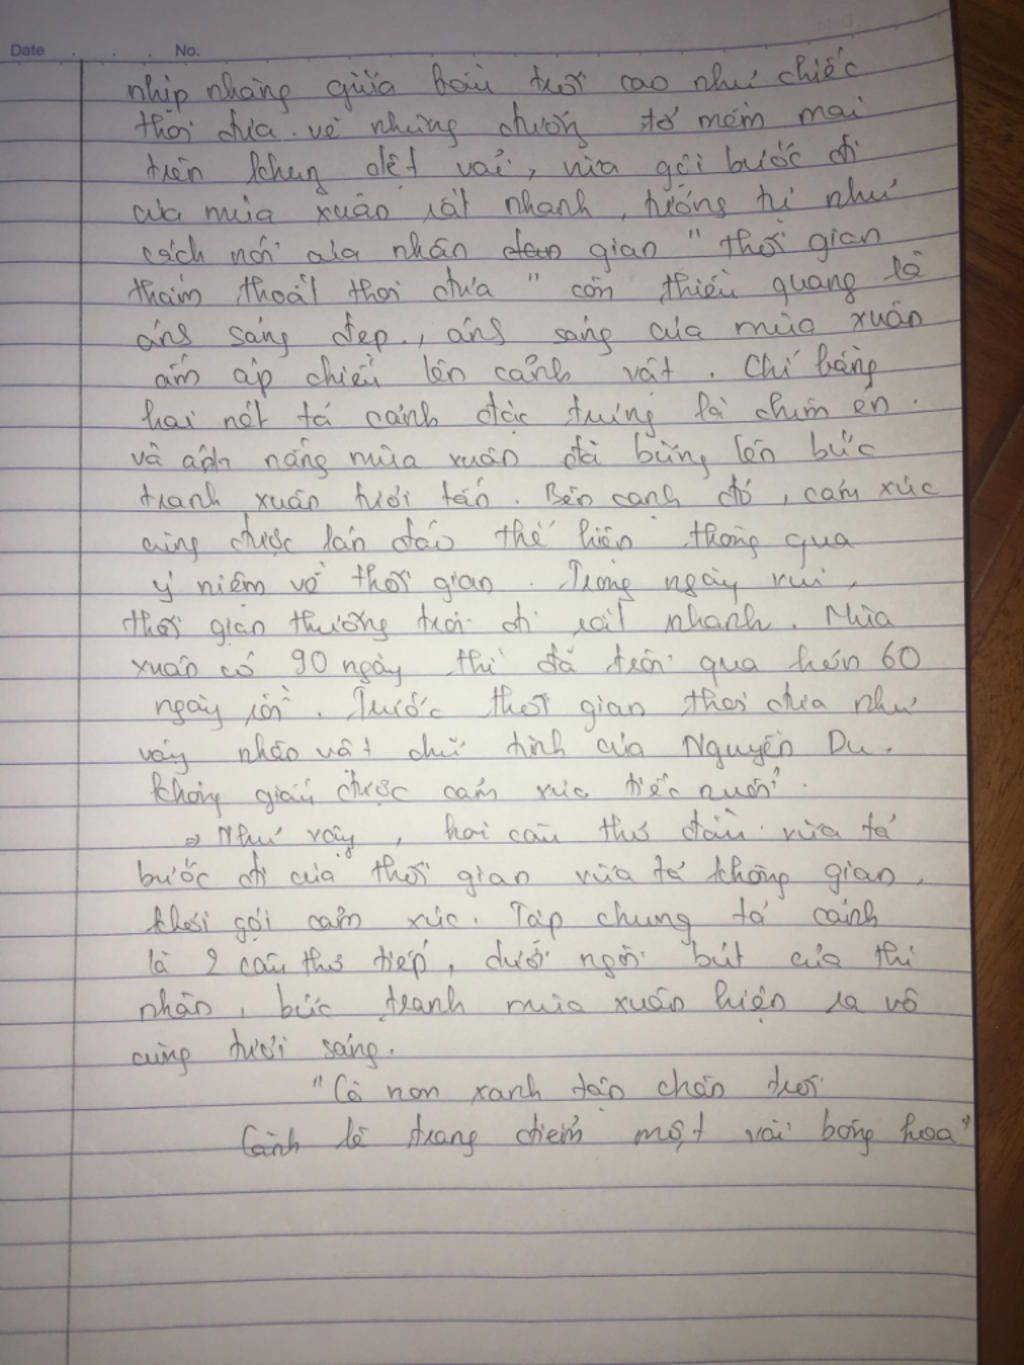 Date . . . No.
nhịp nhàng giữa bầu trời cao như chiếc
thoi đưa vẽ những đường tơ mềm mại
trên khung dệt vải, vừa gợi bước đi
của mùa xuân rất nhanh, tương tự như
cách nói của nhân dan gian " thời gian
thấm thoắt thoi đưa " còn thiều quang là
ánh sáng đẹp, ánh sáng của mùa xuân
ấm áp chiếu lên cảnh vật. Chỉ bằng
hai nét tả cảnh đặc trưng là chim én
và ánh nắng mùa xuân đã bừng lên bức
tranh xuân tươi tắn. Bên cạnh đó, cảm xúc
cũng được kín đáo thể hiện thông qua
ý niệm về thời gian. Trong ngày vui,
thời gian thường trôi đi rất nhanh. Mùa
xuân có 90 ngày thì đã trôi qua hơn 60
ngày rồi. Trước thời gian thoi đưa như
vậy nhân vật chữ tình của Nguyễn Du.
không giấu được cảm xúc tiếc nuối.
⇒ Như vậy, hai câu thơ đầu vừa tả
bước đi của thời gian vừa tả không gian,
khơi gợi cảm xúc. Tập chung tả cảnh
là 2 câu thơ tiếp, dưới ngòi bút của thi
nhân, bức tranh mùa xuân hiện ra vô
cùng tươi sáng.
"Cỏ non xanh tận chân trời
Cành lê trang điểm một vài bông hoa"